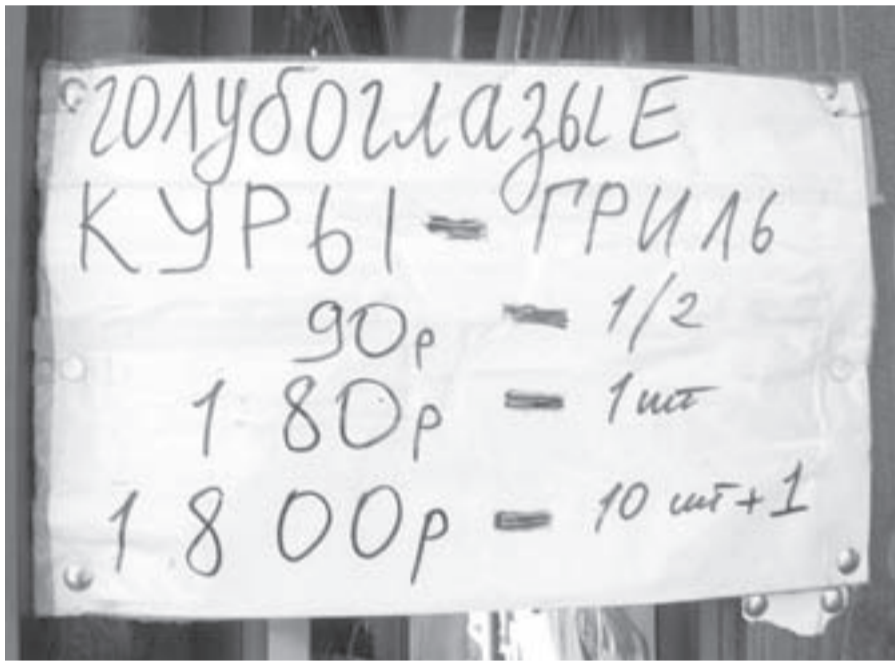 ГОЛУБОГЛАЗЫЕ
КУРЫ - ГРИЛЬ
90р - 1/2
180р - 1 шт
1800р - 10 шт + 1